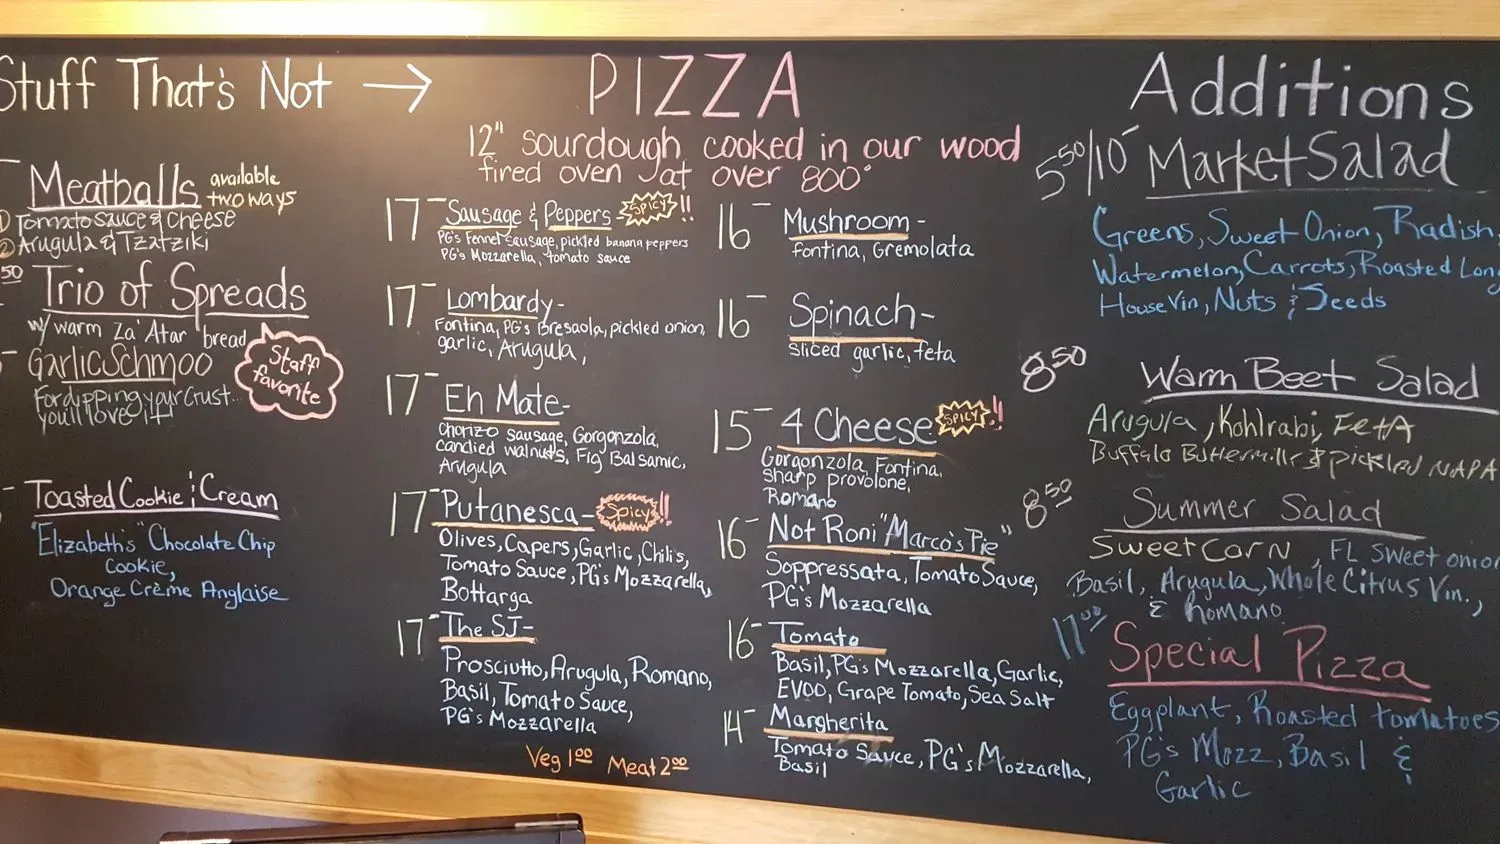 Stuff That's Not →
Meatballs available
two ways
① Tomato sauce & cheese
② Arugula & Tzatziki
50
Trio of Spreads
w/ warm Za'Atar bread
Garlic Schmoo
Staff
favorite
For dipping your crust...
you'll love it!
Toasted Cookie & Cream
"Elizabeth's" Chocolate Chip
Cookie,
Orange Crème Anglaise
PIZZA
12" sourdough cooked in our wood
fired oven at over 800°
17- Sausage & Peppers - SPICY!!
PG's Fennel Sausage, pickled banana peppers
PG's Mozzarella, tomato sauce
17- Lombardy-
Fontina, PG's Bresaola, pickled onion,
garlic, Arugula,
17- Eh Mate-
Chorizo sausage, Gorgonzola,
candied walnuts, Fig Balsamic,
Arugula
17- Putanesca- Spicy!!
Olives, Capers, Garlic, Chilis,
Tomato Sauce, PG's Mozzarella,
Bottarga
17- The SJ-
Prosciutto, Arugula, Romano,
Basil, Tomato Sauce,
PG's Mozzarella
Veg 1.00 Meat 2.00
16- Mushroom -
fontina, Gremolata
16- Spinach-
sliced garlic, feta
15- 4 Cheese SPICY!!
Gorgonzola, Fontina,
sharp provolone,
Romano
16- Not Roni "Marco's Pie"
Soppressata, Tomato Sauce,
PG's Mozzarella
16- Tomato
Basil, PG's Mozzarella, Garlic,
EVOO, Grape Tomato, Sea Salt
14- Margherita
Tomato Sauce, PG's Mozzarella,
Basil
Additions
5.50/10- Market Salad
Greens, Sweet Onion, Radish,
Watermelon, Carrots, Roasted Long
House Vin, Nuts & Seeds
8.50 Warm Beet Salad
Arugula, Kohlrabi, Feta
Buffalo Buttermilk & pickled NAPA
8.50 Summer Salad
Sweet Corn, FL Sweet onion
Basil, Arugula, Whole Citrus Vin.,
& Romano
17.00 Special Pizza
Eggplant, Roasted tomatoes
PG's Mozz, Basil &
Garlic